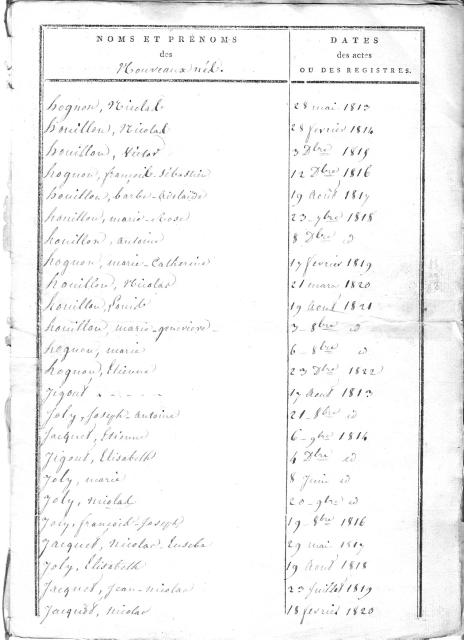 NOMS ET PRÉNOMS
des
Nouveaux nés.
DATES
des actes
OU DES REGISTRES.
hognon, Nicolas 28 mai 1813
houillon, Nicolas 28 fevrier 1814
houillon, Victor 3 Dbre 1815
hognon, françois-Sébastien 12 Dbre 1816
houillon, barbe-Adelaïde 19 Août 1817
houillon, marie-Rose 23-7bre 1818
houillon, Antoine 8 Dbre id
hognon, marie-Catherine 17 fevrier 1819
houillon, Nicolas 21 mars 1820
houillon, Louis 19 Août 1821
houillon, marie-geneviève- 3-8bre id
hognon, marie 6-8bre id
hognon, Etienne 23 Dbre 1822
Jigout - - - - - 17 Août 1813
Joly, Joseph-Antoine 21-8bre id
Jacquet, Etienne 6-9bre 1814
Jigout, Elisabeth 4 Dbre id
Joly, marie 8 Juin id
Joly, Nicolas 20-9bre id
Joly, françois-Joseph 19-8bre 1816
Jacquet, Nicolas-Eusebe 29 mai 1817
Joly, Elisabeth 19 Août 1818
Jacquet, Jean-nicolas 23 Juillet 1819
Jacquet, nicolas 18 fevrier 1820